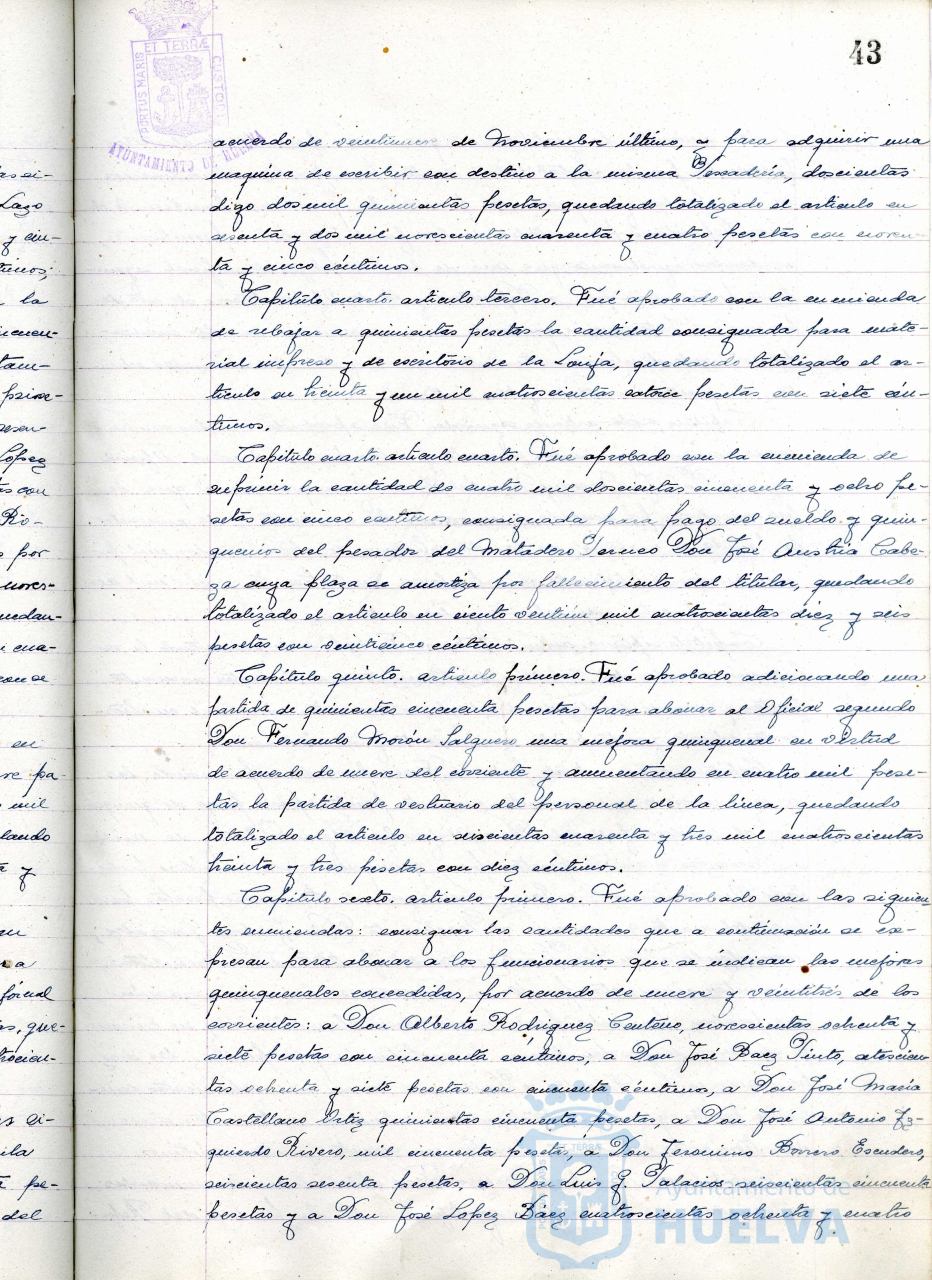 43
PORTUS MARIS ET TERRÆ CUSTODIA
AYUNTAMIENTO DE HUELVA
acuerdo de veintinueve de Noviembre último, y para adquirir una
maquina de escribir con destino a la misma Pescadería, doscientas
digo dos mil quinientas pesetas, quedando totalizado el articulo en
sesenta y dos mil novescientas cuarenta y cuatro pesetas con noven-
ta y cinco céntimos.
Capítulo cuarto. articulo tercero. Fué aprobado con la enmienda
de rebajar a quinientas pesetas la cantidad consignada para mate-
rial impreso y de escritorio de la Lonja, quedando totalizado el ar-
tículo en treinta y un mil cuatroscientas catorce pesetas con siete cén-
timos.
Capítulo cuarto. artículo cuarto. Fué aprobado con la enmienda de
suprimir la cantidad de cuatro mil doscientas cincuenta y ocho pe-
setas con cinco centimos, consignada para pago del sueldo y quin-
quenios del pesador del Matadero Don José Austria Cabe-
za cuya plaza se amortiza por fallecimiento del titular, quedando
totalizado el articulo en ciento ventiun mil cuatroscientas diez y seis
pesetas con veinticinco céntimos.
Capítulo quinto. articulo primero. Fué aprobado adicionando una
partida de quinientas cincuenta pesetas para abonar al Oficial segundo
Don Fernando Morón Salguero una mejora quinquenal en virtud
de acuerdo de nueve del corriente y aumentando en cuatro mil pese-
tas la partida de vestuario del personal de la línea, quedando
totalizado el articulo en seiscientas cuarenta y tres mil cuatroscientas
treinta y tres pesetas con diez céntimos.
Capítulo sexto. articulo primero. Fué aprobado con las siguien-
tes enmiendas: consignar las cantidades que a continuación se ex-
presan para abonar a los funcionarios que se indican las mejoras
quinquenales concedidas, por acuerdo de nueve y veintitrés de los
corrientes: a Don Alberto Rodríguez Centeno, novescientas ochenta y
siete pesetas con cincuenta céntimos, a Don José Baez Pinto, setescien-
tas ochenta y siete pesetas con cincuenta céntimos, a Don José María
Castellano Ortiz quinientas cincuenta pesetas, a Don José Antonio Iz-
quierdo Rivero, mil cincuenta pesetas, a Don Jeronimo Borrero Escudero,
seiscientas sesenta pesetas, a Don Luis G. Palacios seiscientas cincuenta
pesetas y a Don José Lopez Báez cuatroscientas ochenta y cuatro
Ayuntamiento de
HUELVA